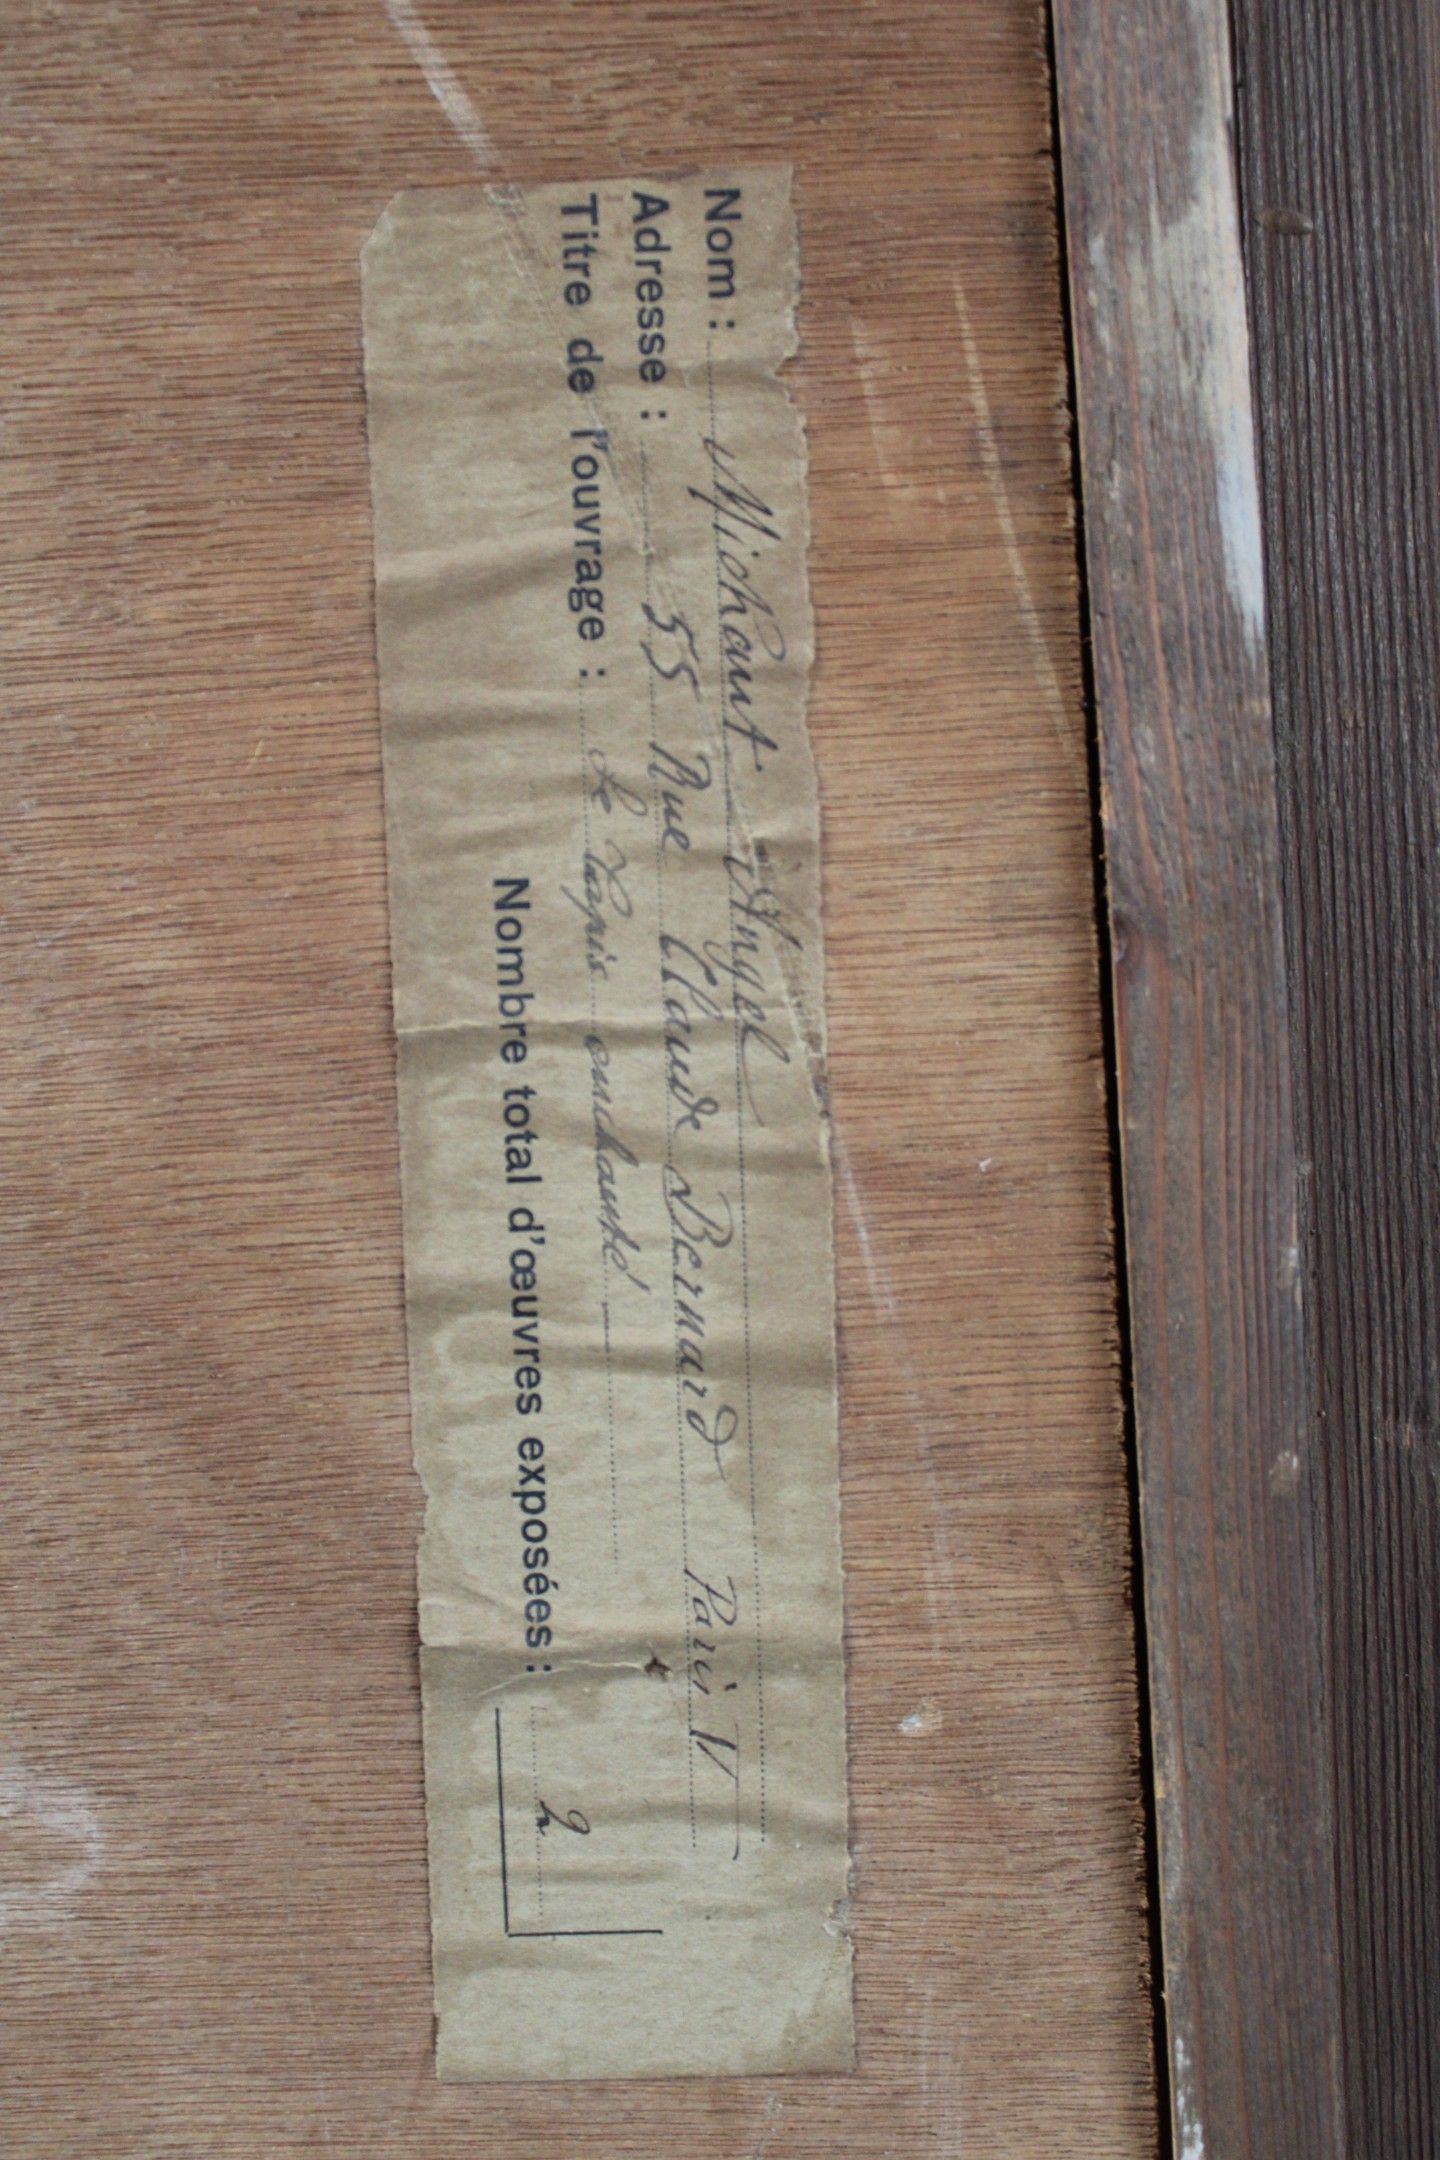 Nom : Michaut Angel
Adresse : 55 Rue Claude Bernard Paris V
Titre de l'ouvrage : Le Tapis enchanté
Nombre total d'œuvres exposées : 2